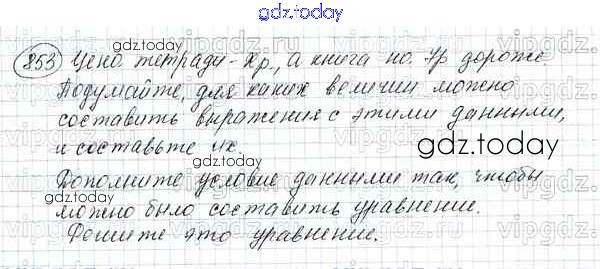 gdz.today
853 Цена тетради - Хр., а книга на Ур дороже
gdz.today
Подумайте, для каких величин можно
составить выражения с этими данными,
и составьте их.
gdz.today
Дополните условие данными так, чтобы
можно было составить уравнение.
Решите это уравнение.